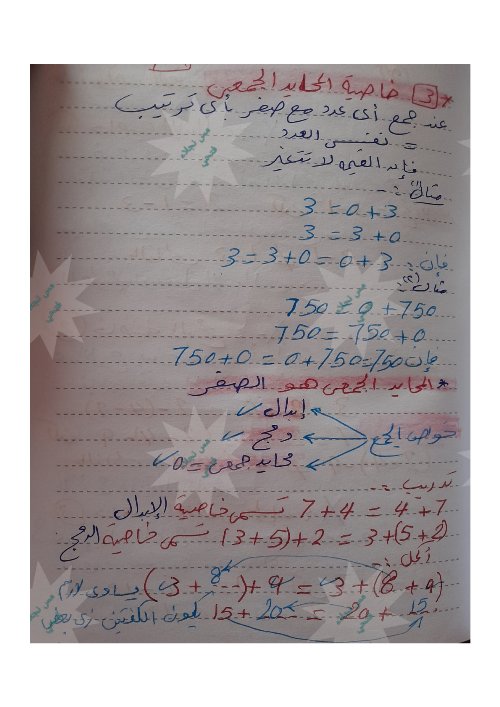 * [3] خاصية المحايد الجمعى
عند جمع أى عدد مع صفر بأى ترتيب
= نفس العدد
فإن القيمة لا تتغير
مثال١ :-
3 = 0 + 3
3 = 3 + 0
فإن :- 3 = 3 + 0 = 0 + 3
مثال (٢) :-
750 = 0 + 750
750 = 750 + 0
فإن 750 + 0 = 0 + 750 = 750
* المحايد الجمعى هو الصفر
إبدال ✓
خواص الجمع دمج ✓
محايد جمعى = 0 ✓
تدريب :-
7 + 4 = 4 + 7 تسمى خاصية الإبدال
(3 + 5) + 2 = 3 + (5 + 2) تسمى خاصية الدمج
أكمل :-
(3 + 8) + 9 = 3 + (8 + 9) يساوى لازم
15 + 20 = 20 + 15 يكون الكفتين زى بعض
مس نجلاء فتحي